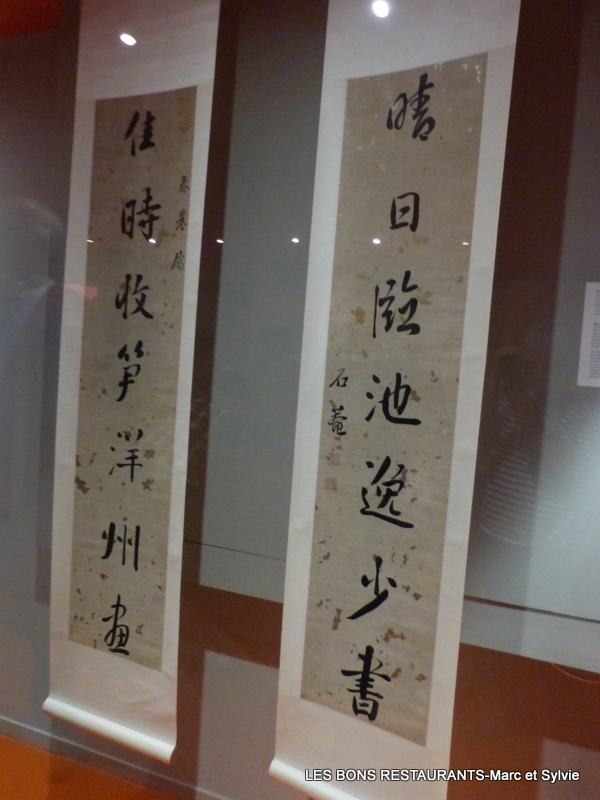 晴日臨池逸少書
石菴
佳時收筍洋州畫
春農屬
LES BONS RESTAURANTS-Marc et Sylvie